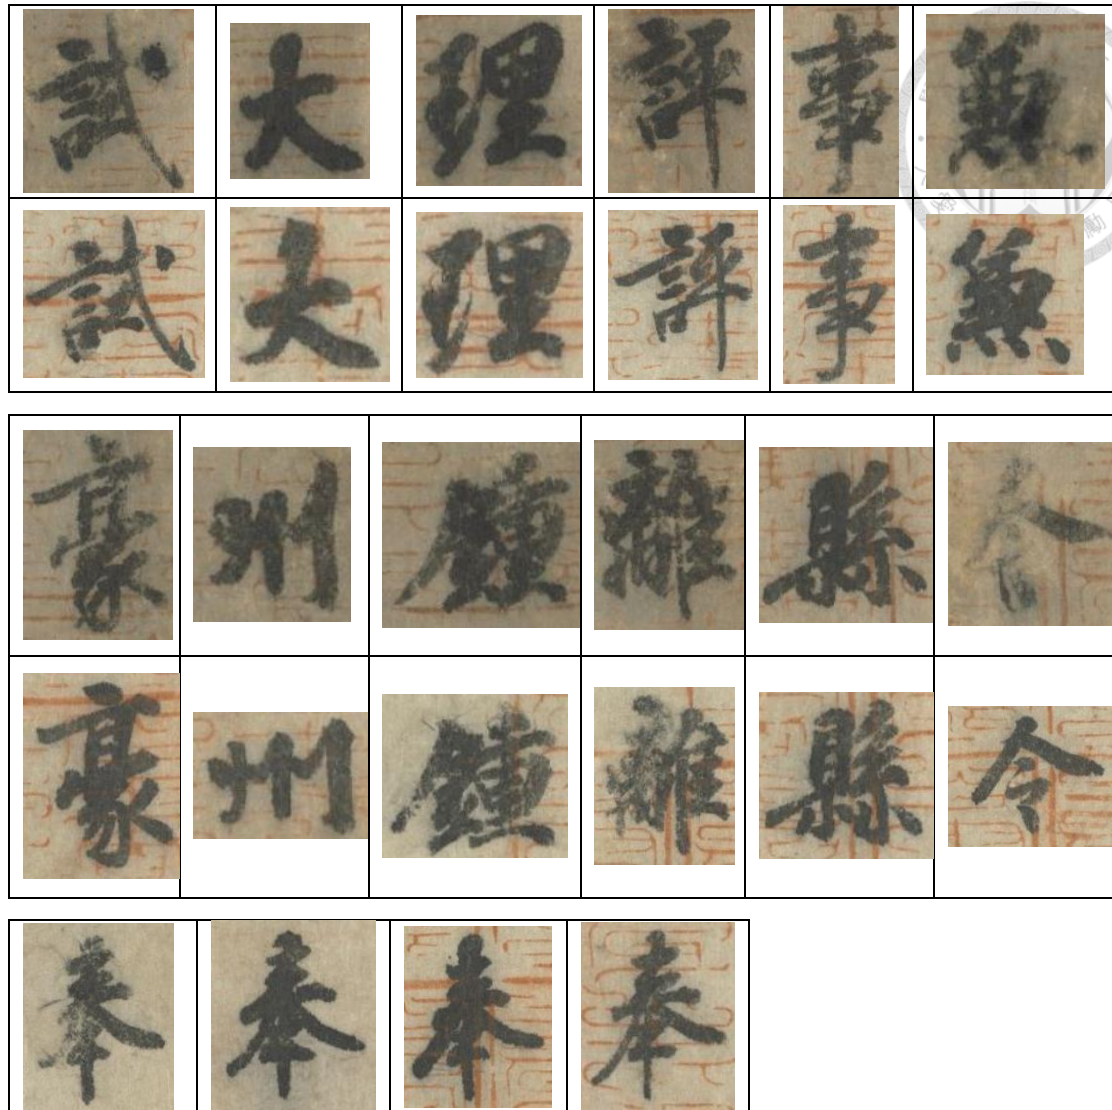 試大理評事兼
試大理評事兼
豪州鍾離縣令
豪州鍾離縣令
奉奉奉奉